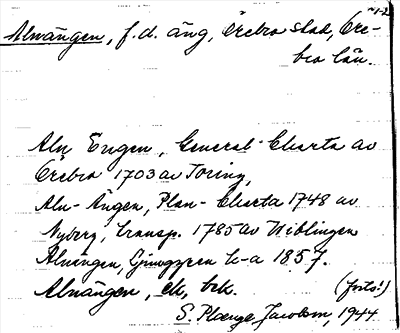 Alnängen, f.d. äng, Örebro stad, Öre-
bro län.
Aln Engen, General-Charta av
Örebro 1703 av Toring,
Aln-Ängen, Plan-Charta 1748 av
Nyberg, transp. 1785 av Wiblingen
Alnängen, Ljunggren k-a 1857.
Alnängen, ek, bek. (forts!)
S. Placenge Jacobson, 1944